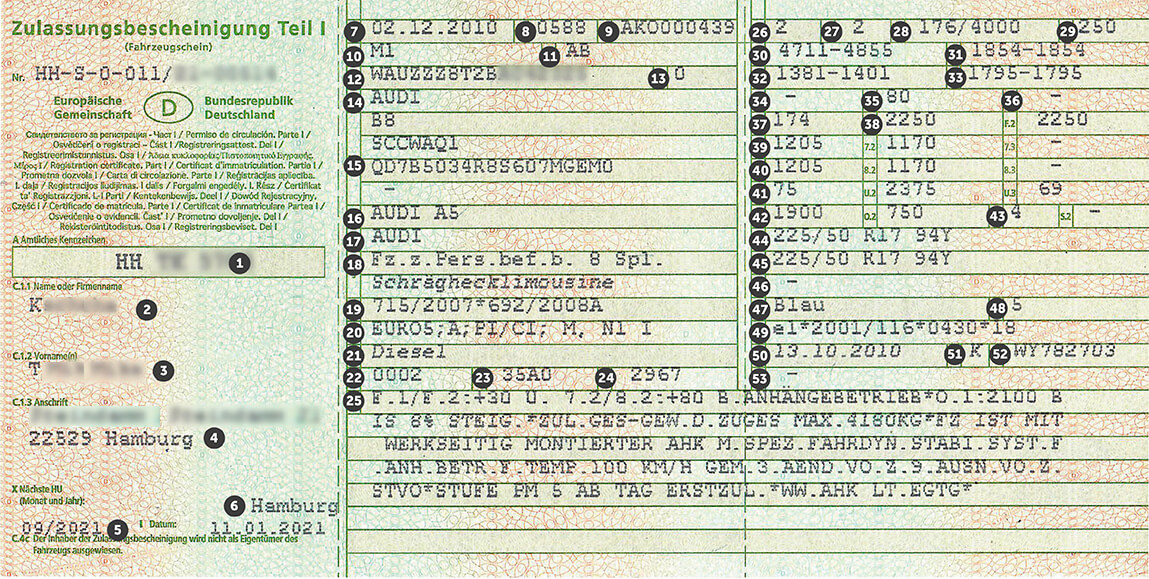 Zulassungsbescheinigung Teil I
(Fahrzeugschein)
Nr. HH-S-0-011/
Europäische Gemeinschaft D Bundesrepublik Deutschland
Свидетелството за регистрация - Част I / Permiso de circulación. Parte I /
Osvědčení o registraci – Část I / Registreringsattest. Del I /
Registreerimistunnistus. Osa I / Άδεια κυκλοφορίας/Πιστοποιητικό Εγγραφής.
Μέρος I / Registration certificate. Part I / Certificat d'immatriculation. Partie I /
Prometna dozvola I / Carta di circolazione. Parte I / Reģistrācijas apliecība.
I. daļa / Registracijos liudijimas. I dalis / Forgalmi engedély. I. Rész / Ċertifikat
ta' Reġistrazzjoni. L-I Parti / Kentekenbewijs. Deel I / Dowód Rejestracyjny,
Część I / Certificado de matrícula. Parte I / Certificat de înmatriculare Partea I /
Osvedčenie o evidencii. Časť I / Prometno dovoljenje. Del I /
Rekisteröintitodistus. Osa I / Registreringsbeviset. Del I
A Amtliches Kennzeichen
HH 1
C.1.1 Name oder Firmenname
K 2
C.1.2 Vorname(n)
T 3
C.1.3 Anschrift
22529 Hamburg 4
X Nächste HU
(Monat und Jahr):
6 Hamburg
09/2021 5 I Datum: 11.01.2021
C.4c Der Inhaber der Zulassungsbescheinigung wird nicht als Eigentümer des
Fahrzeugs ausgewiesen.
7 02.12.2010 8 0588 9 AKO000439
10 M1 11 AB
12 WAUZZZ8T2B 13 0
14 AUDI
B8
SCCWAQ1
15 QD7B5034R8S607MGEM0
-
16 AUDI A5
17 AUDI
18 Fz.z.Pers.bef.b. 8 Spl.
Schräghecklimousine
19 715/2007*692/2008A
20 EURO5;A;PI/CI; M, N1 I
21 Diesel
22 0002 23 35A0 24 2967
25 F.1/F.2:+30 U. 7.2/8.2:+80 B.ANHÄNGEBETRIEB*O.1:2100 B
IS 8% STEIG.*ZUL.GES-GEW.D.ZUGES MAX.4180KG*FZ IST MIT
WERKSEITIG MONTIERTER AHK M.SPEZ.FAHRDYN.STABI.SYST.F
.ANH.BETR.F.TEMP.100 KM/H GEM.3.AEND.VO.Z.9.AUSN.VO.Z.
STVO*STUFE PM 5 AB TAG ERSTZUL.*WW.AHK LT.EGTG*
26 2 27 2 28 176/4000 29 250
30 4711-4855 31 1854-1854
32 1381-1401 33 1795-1795
34 - 35 80 36 -
37 174 38 2250 F.2 2250
39 1205 7.2 1170 7.3
40 1205 8.2 1170 8.3
41 75 U.2 2375 U.3 69
42 1900 O.2 750 43 4 S.2 -
44 225/50 R17 94Y
45 225/50 R17 94Y
46 -
47 Blau 48 5
49 e1*2001/116*0430*18
50 13.10.2010 51 K 52 WY782703
53 -